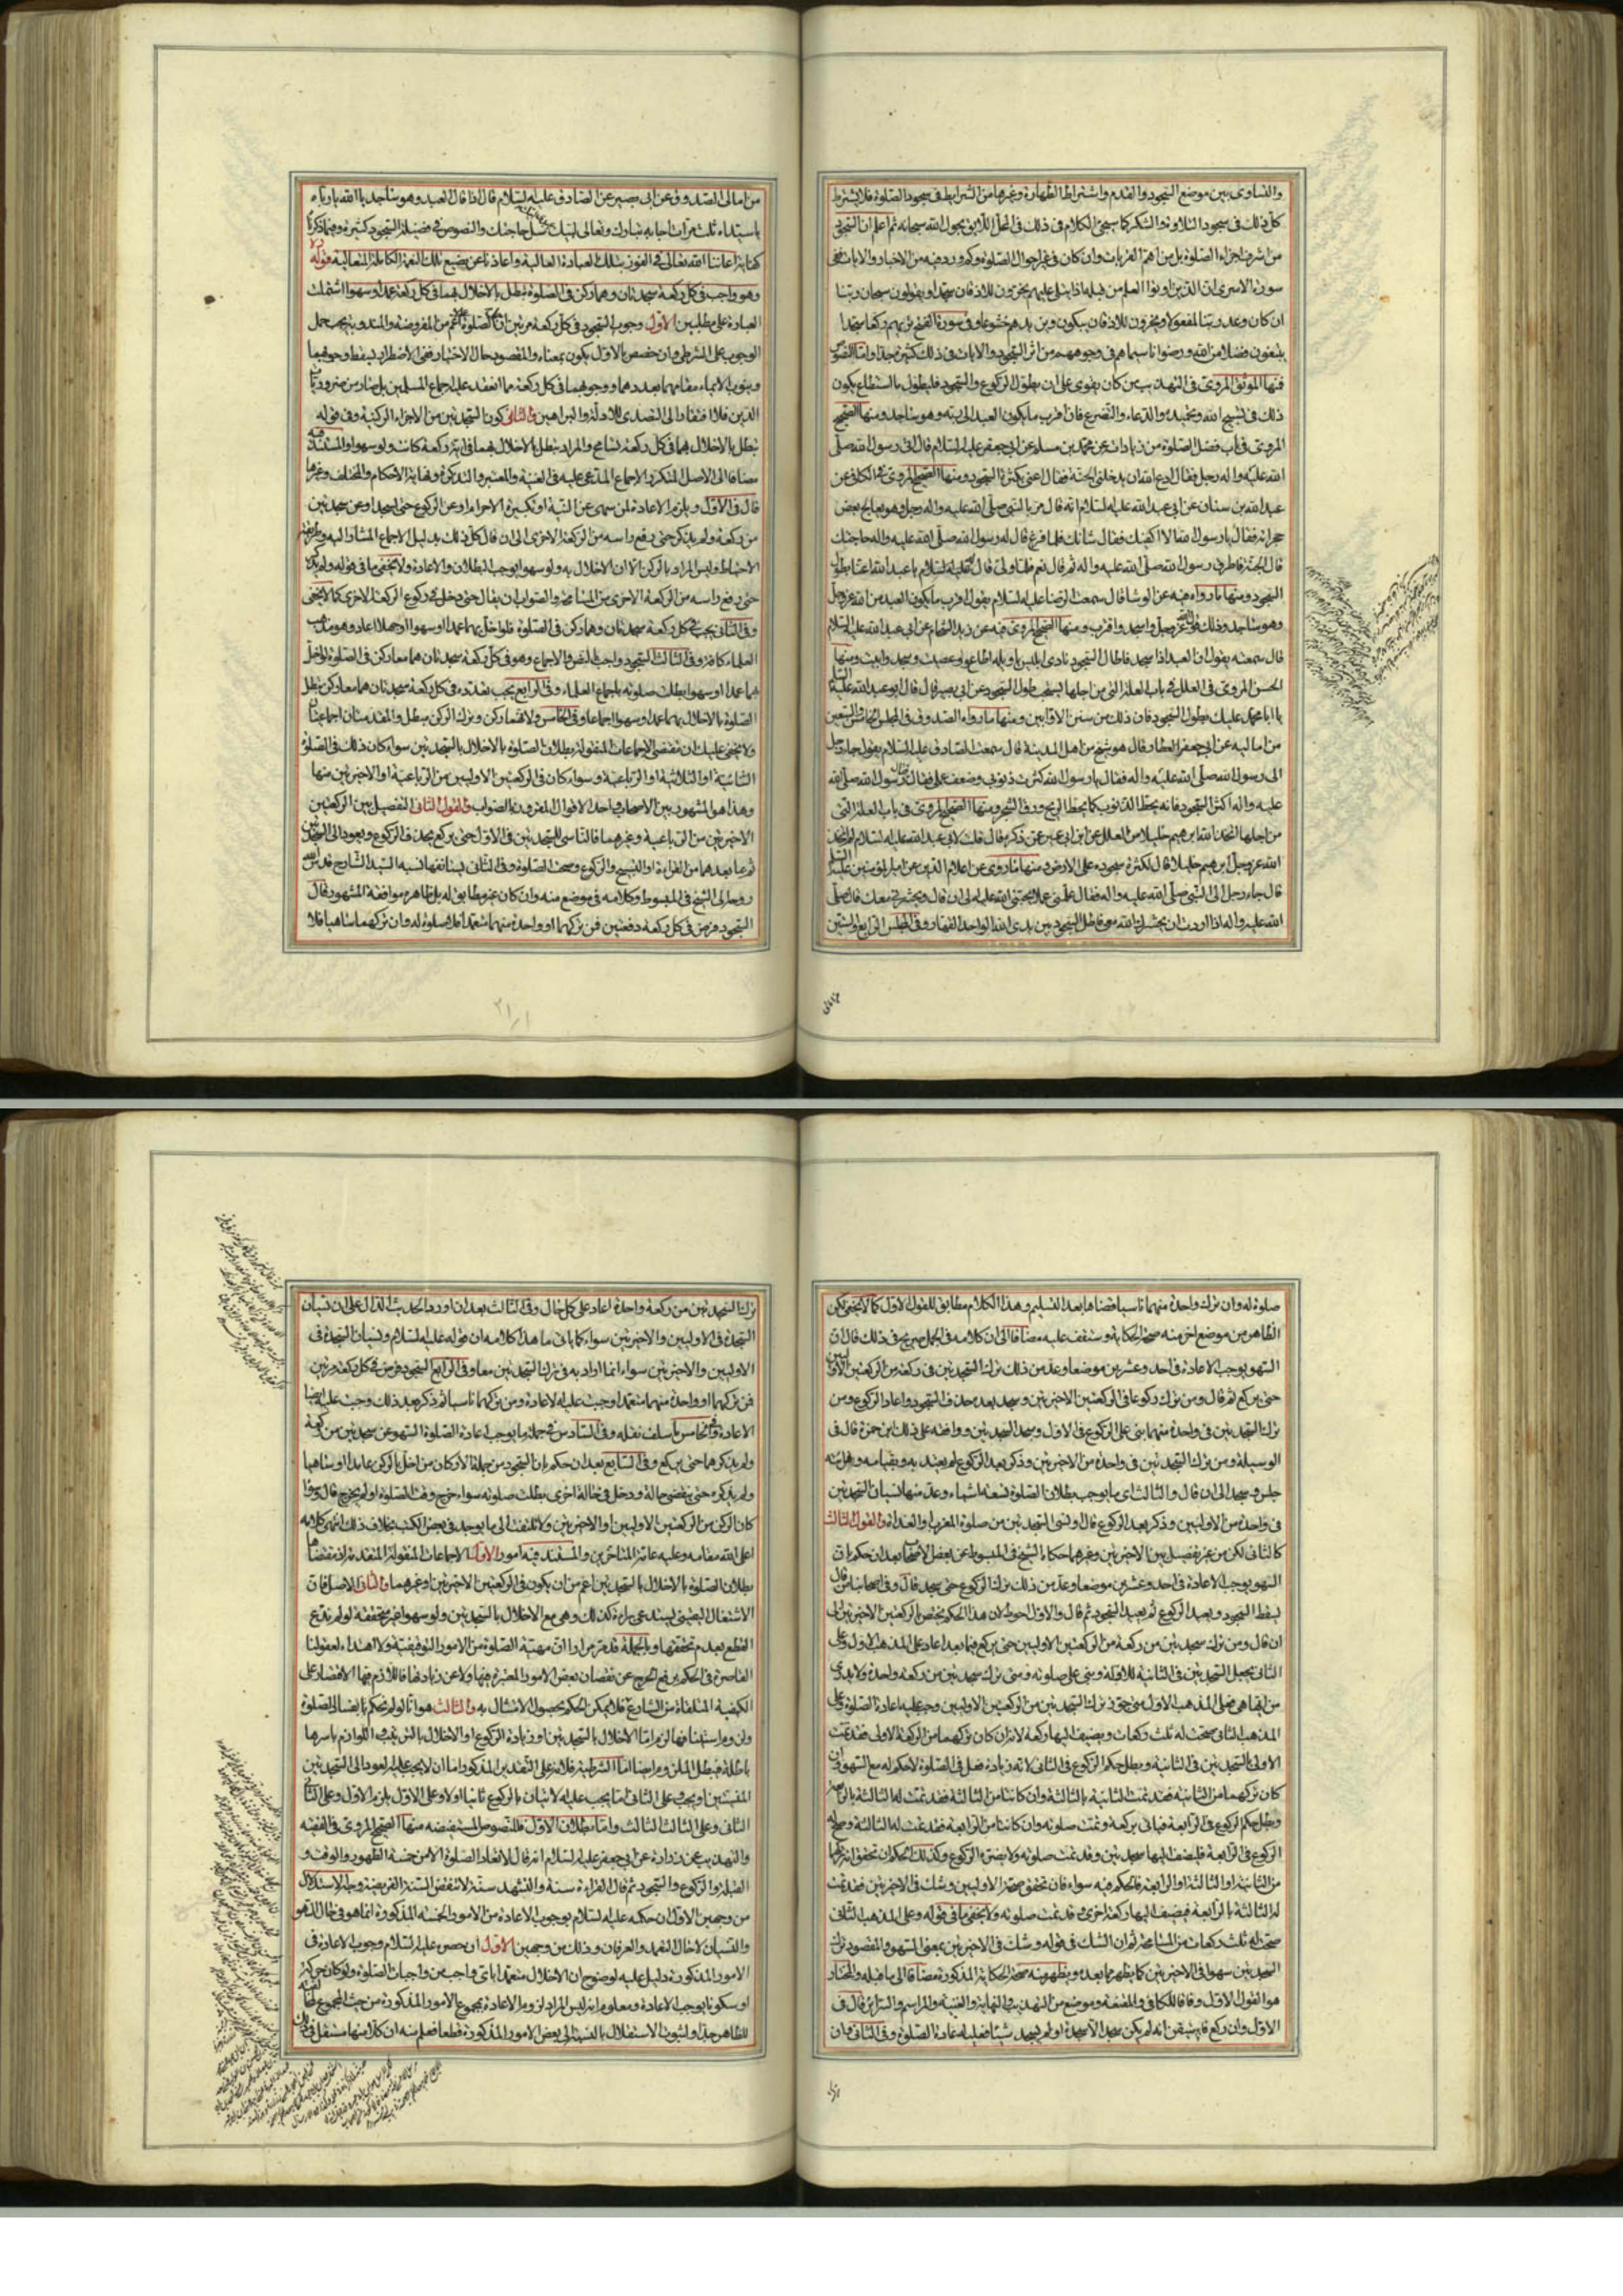 والتساوى بين موضع السجود والقدم واشتراط الطهارة وغيرها من الشرايط فى سجود الصلوة فلا يشترط
كل ذلك فى سجود التلاوة والشكر كما سيجئ الكلام فى ذلك فى المحل اللايق بحول الله سبحانه ثم اعلم ان السجود
من اشرف اجزاء الصلوة بل من اهم القربات وان كان فى غير احوال الصلوة وكم ورد فيه من الاخبار والايات ففى
سورة الاسرى ان الذين اوتوا العلم من قبله اذا يتلى عليهم يخرون للاذقان سجدا ويقولون سبحان ربنا
ان كان وعد ربنا لمفعولا ويخرون للاذقان يبكون ويزيدهم خشوعا وفى سورة الفتح تريهم ركعا سجدا
يبتغون فضلا من الله ورضوانا سيماهم فى وجوههم من اثر السجود والايات فى ذلك كثيرة جدا واما النصوص
فمنها الموثق المروى فى التهذيب من كان يقوى على ان يطول الركوع والسجود فليطول ما استطاع يكون
ذلك فى تسبيح الله وتحميده والدعاء والتضرع فان اقرب ما يكون العبد الى ربه وهو ساجد ومنها الصحيح
المروى فى باب فضل الصلوة من زيادات عن محمد بن مسلم عن ابى جعفر عليه السلام قال اتى رسول الله صلى
الله عليه واله رجل فقال ادع الله ان يدخلنى الجنة فقال اعنى بكثرة السجود ومنها الصحيح المروى فى الكافى عن
عبد الله بن سنان عن ابى عبد الله عليه السلام انه قال مر بالنبى صلى الله عليه واله رجل وهو يعالج بعض
حجراته فقال يا رسول الله الا اكفيك فقال شانك فلما فرغ قال له رسول الله صلى الله عليه واله حاجتك
قال الجنة فاطرق رسول الله صلى الله عليه واله ثم قال نعم فلما ولى قال له عليه السلام يا عبد الله اعنا بطول
السجود ومنها ما رواه فيه عن الوشا قال سمعت الرضا عليه السلام يقول اقرب ما يكون العبد من الله عز وجل
وهو ساجد وذلك قوله عز وجل واسجد واقترب ومنها الصحيح المروى فيه عن زيد الشحام عن ابى عبد الله عليه السلام
قال سمعته يقول ان العبد اذا سجد فاطال السجود نادى ابليس يا ويله اطاع وعصيت وسجد وابيت ومنها
الحسن المروى فى العلل فى باب العلة التى من اجلها يستحب طول السجود عن ابى بصير قال قال ابو عبد الله عليه السلام
يا ابا محمد عليك بطول السجود فان ذلك من سنن الاوابين ومنها ما رواه الصدوق فى المجلس الخامس والتسعين
من اماليه عن ابى جعفر العطار قال هو شيخ من اهل المدينة قال سمعت الصادق عليه السلام يقول جاء رجل
الى رسول الله صلى الله عليه واله فقال يا رسول الله كثرت ذنوبى وضعف عملى فقال رسول الله صلى الله
عليه واله اكثر السجود فانه يحط الذنوب كما يحط الريح ورق الشجر ومنها الصحيح المروى فى باب العلة التى
من اجلها اتخذ الله ابراهيم خليلا من العلل عن ابن ابى عمير عمن ذكره قال قلت لابى عبد الله عليه السلام لم اتخذ
الله عز وجل ابرهيم خليلا قال لكثرة سجوده على الارض ومنها ما روى عن اعلام الدين عن امير المؤمنين عليه السلام
قال جاء رجل الى النبى صلى الله عليه واله فقال علمنى عملا يحبنى الله عليه الى ان قال ويحشرنى معك قال صلى
الله عليه واله اذا اردت ان يحشرك الله معى فاطل السجود بين يدى الله الواحد القهار وفى المجلس الرابع والستين
من امالى الصدوق عن ابى بصير عن الصادق عليه السلام قال اذا قال العبد وهو ساجد يا الله يا رباه
يا سيداه ثلث مرات اجابه تبارك وتعالى لبيك سل حاجتك والنصوص فى فضيلة السجود كثيرة وفيما ذكرنا
كفاية اعاننا الله تعالى فى الفوز بتلك العبادة العالية واعاذنا عن تضييع تلك النعمة الكاملة المتعالية قوله
وهو واجب فى كل ركعة سجدتان وهما ركن فى الصلوة تبطل بالاخلال بهما فى كل ركعة عمدا وسهوا اشتملت
العبارة على مطلبين الاول وجوب السجود فى كل ركعة مرتين ان الصلوة اعم من المفروضة والمندوبة يجب حمل
الوجوب على الشرطى وان خصص بالاول يكون بمعناه والمقصود حال الاختيار ففى الاضطرار يسقط وجوبهما
وينوب الايماء مقامهما بعددهما ووجوبهما فى كل ركعة مما انعقد عليه اجماع المسلمين بل صار من ضروريات
الدين فلا افتقار الى التصدى للادلة والبراهين والثانى كون السجدتين من الاجزاء الركنية وفى قوله
تبطل بالاخلال بهما فى كل ركعة تسامح والمراد تبطل بالاخلال بهما فى اية ركعة كانت ولو سهوا والمستند فيه
مضافا الى الاصل المتكرر الاجماع المدعى عليه فى الغنية والمعتبر والتذكرة ونهاية الاحكام والمختلف وغيرها
قال فى الاول ويلزم الاعادة لمن سهى عن النية او تكبيرة الاحرام او عن الركوع حتى يسجد او عن سجدتين
من ركعة ولم يذكر حتى رفع راسه من الركعة الاخرى الى ان قال كل ذلك بدليل الاجماع المشار اليه وطريقة
الاحتياط وليس المراد بالركن الا ان الاخلال به ولو سهوا يوجب البطلان والاعادة ولا يخفى ما فى قوله ولم يذكر
حتى رفع راسه من الركعة الاخرى من المسامحة والصواب ان يقال حتى دخل فى ركوع الركعة الاخرى كما لا يخفى
وفى الثانى يجب فى كل ركعة سجدتان وهما ركن فى الصلوة فلو اخل بهما عمدا او سهوا او جهلا اعاد وهو مذهب
العلماء كافة وفى الثالث السجود واجب بالنص والاجماع وهو فى كل ركعة سجدتان هما معا ركن فى الصلوة لو اخل
بهما عمدا او سهوا بطلت صلوته باجماع العلماء وفى الرابع يجب تعدده فى كل ركعة سجدتان هما معا ركن تبطل
الصلوة بالاخلال بهما عمدا وسهوا اجماعا وفى الخامس ولانهما ركن وترك الركن مبطل والمقدمتان اجماعيتان
ولا يخفى عليك ان مقتضى الاجماعات المنقولة بطلان الصلوة بالاخلال بالسجدتين سواء كان ذلك فى الصلوة
الثنائية او الثلاثية او الرباعية وسواء كان فى الركعتين الاوليين من الرباعية او الاخيرتين منها
وهذا هو المشهور بين الاصحاب واحد الاقوال المقرون بالصواب والقول الثانى التفصيل بين الركعتين
الاخيرتين من الرباعية وغيرهما فالناسى للسجدتين فى الاول حتى يركع يحذف الركوع ويعود الى السجدتين
ثم ما بعدهما من القراءة او التسبيح والركوع وصحت الصلوة وفى الثانى يستانفها نسبه السيد الشارح قدس الله
روحه الى الشيخ فى المبسوط وكلامه فى موضع منه وان كان غير مطابق له بل ظاهره موافقة المشهور قال
السجود فرض فى كل ركعة دفعتين فمن تركهما او واحدة منهما متعمدا فلا صلوة له وان تركهما ساهيا فلا
صلوة له وان ترك واحدة منهما ناسيا قضاها بعد التسليم وهذا الكلام مطابق للقول الاول كما لا يخفى لكن
الظاهر من موضع اخر منه صحة الحكاية وستقف عليه مضافا الى ان كلامه فى الجمل صريح فى ذلك قال ان
السهو يوجب الاعادة فى احد وعشرين موضعا وعد من ذلك ترك السجدتين فى ركعة من الركعتين الاوليين
حتى يركع ثم قال ومن ترك ركوعا فى الركعتين الاخيرتين وسجد بعد حذف السجود واعاد الركوع ومن
ترك السجدتين فى واحدة منهما بنى على الركوع فى الاول وسجد السجدتين ووافقه على ذلك ابن حمزة قال فى
الوسيلة ومن ترك السجدتين فى واحدة من الاخيرتين وذكر بعد الركوع لم يعتد به
جلس وسجد الى ان قال والثالث اى ما يوجب بطلان الصلوة تسعة اشياء وعد منها نسيان السجدتين
فى واحدة من الاوليين وذكر بعد الركوع قال او نسى السجدتين من صلوة المغرب والغداة والقول الثالث
كالثانى لكن من غير تفصيل بين الاخيرتين وغيرهما حكاه الشيخ فى المبسوط عن بعض الاصحاب بعد ان حكم بان
السهو يوجب الاعادة فى احد وعشرين موضعا وعد من ذلك ترك الركوع حتى سجد قال وفى اصحابنا من قال
يسقط السجود ويعيد الركوع ثم يعيد السجود ثم قال والاول احوط لان هذا الحكم يختص الركعتين الاخيرتين الى
ان قال ومن ترك سجدتين من ركعة من الركعتين الاوليين حتى يركع فيما بعد اعاد على المذهب الاول وعلى
الثانى يجعل السجدتين فى الثانية للاولة وبنى على صلوته ومتى ترك سجدتين من ركعة واحدة ولا يدرى
من ايها هى فعلى المذهب الاول متى جوز ترك السجدتين من الركعتين الاوليين وجب عليه اعادة الصلوة وعلى
المذهب الثانى صحت له ثلث ركعات ويضيف اليها ركعة لانه ان كان تركهما من الركعة الاولى فقد تمت
الاولى بالسجدتين فى الثانية وبطل حكم الركوع فى الثانى لانه زيادة فعل فى الصلوة لا حكم له مع السهو وان
كان تركهما من الثانية فقد تمت الثانية بالثالثة وان كانتا من الثالثة فقد تمت له الثالثة بالرابعة
وبطل حكم الركوع فى الرابعة فياتى بركعة وتمت صلوته وان كانتا من الرابعة فقد تمت له الثالثة وصح له
الركوع فى الرابعة فليضف اليها سجدتين وقد تمت صلوته ولا يضره الركوع وكذلك الحكم ان تحقق انه تركهما
من الثانية او الثالثة او الرابعة فالحكم فيه سواء فان تحقق صحة الاوليين وشك فى الاخيرتين فقد تمت
له الثالثة بالرابعة فيضيف اليها ركعة اخرى وقد تمت صلوته ولا يخفى ما فى قوله وعلى المذهب الثانى
صحت له ثلث ركعات من المسامحة ثم ان الشك فى قوله وشك فى الاخيرتين بمعنى السهو والمقصود ترك
السجدتين سهوا فى الاخيرتين كما يظهر مما بعده ويظهر منه صحة الحكاية المذكورة مضافا الى ما قبله والمختار
هو القول الاول وفاقا للكافى والمقنعة وموضع من التهذيب والنهاية والغنية والمراسم والسرائر قال فى
الاول وان ركع فاستيقن انه لم يكن سجد الا سجدة او لم يسجد شيئا فعليه اعادة الصلوة وفى الثانى فان
ترك السجدتين من ركعة واحدة اعاد على كل حال وفى الثالث بعد ان اورد الحديث الدال على ان نسيان
السجدة فى الاوليين والاخيرتين سواء كما ياتى ما هذا كلامه ان قوله عليه السلام ونسيان السجدة فى
الاوليين والاخيرتين سواء انما اراد به فى ترك السجدتين معا وفى الرابع السجود فرض فى كل ركعة مرتين
فمن تركهما او واحدة منهما متعمدا وجبت عليه الاعادة ومن تركهما ناسيا ثم ذكر بعد ذلك وجبت عليه ايضا
الاعادة وفى الخامس ما سلف نقله وفى السادس فى جملة ما يوجب اعادة الصلوة السهو عن سجدتين من ركعة
ولم يذكرهما حتى يركع وفى السابع بعد ان حكم بان السجود من جملة الاركان من اخل بالركن عامدا او ساهيا
ولم يذكره حتى ينقضى حاله ودخل فى حالة اخرى بطلت صلوته سواء خرج وقت الصلوة او لم يخرج قال وسواء
كان الركن من الركعتين الاوليين او الاخيرتين ولا تلتفت الى ما يوجد فى بعض الكتب بخلاف ذلك انتهى كلامه
اعلى الله مقامه وعليه عامة المتاخرين والمستند فيه امور الاول الاجماعات المنقولة المتقدمة اذ مقتضاها
بطلان الصلوة بالاخلال بالسجدتين اعم من ان يكون فى الركعتين الاخيرتين او غيرهما والثانى الاصل فان
الاشتغال اليقينى يستدعى براءة كذلك وهى مع الاخلال بالسجدتين ولو سهوا غير متحققة لو لم ندع
القطع بعدم تحققها وبالجملة قد مر مرارا ان مهية الصلوة من الامور التوقيفية ولا اهتداء لعقولنا
القاصرة فى الحكم برفع الحرج عن نقصان بعض الامور المعتبرة فيها ولا عن زيادتها فاللازم فيها الاقتصار على
الكيفية المتلقاة من الشارع فلا يمكن الحكم بحصول الامتثال به والثالث هو انا لو لم نحكم بابطال الصلوة
ولزوم استينافها لزم اما الاخلال بالسجدتين او زيادة الركوع او الاخلال بالترتيب اللوازم باسرها
باطلة فبطل الملزوم ايضا اما الشرطية فلانه على التقدير المذكور اما ان لا يجب عليه العود الى السجدتين
المنسيتين او يجب وعلى الثانى اما يجب عليه الاتيان بالركوع ثانيا او لا وعلى الاول يلزم الاول وعلى الثانى
الثانى وعلى الثالث الثالث واما بطلان الاول فللنصوص المستفيضة منها الصحيح المروى فى الفقيه
والتهذيب عن زرارة عن ابى جعفر عليه السلام انه قال لا تعاد الصلوة الا من خمسة الطهور والوقت و
القبلة والركوع والسجود ثم قال القراءة سنة والتشهد سنة ولا تنقض السنة الفريضة وجه الاستدلال
من وجهين الاول ان حكمه عليه السلام بوجوب الاعادة من الامور الخمسة المذكورة انما هو فى حال السهو
والنسيان لا حال العمد والعرفان وذلك من وجهين الاول ان حصره عليه السلام وجوب الاعادة فى
الامور المذكورة دليل عليه لوضوح ان الاخلال متعمدا باى واجب من واجبات الصلوة ولو كان حركة
او سكونا يوجب الاعادة ومعلوم انه ليس المراد لزوم الاعادة بمجموع الامور المذكورة من حيث المجموع
للظاهر جدا ولثبوت الاستقلال بالنسبة الى بعض الامور المذكورة قطعا فعلم منه ان كلا منها مستقل فى ذلك